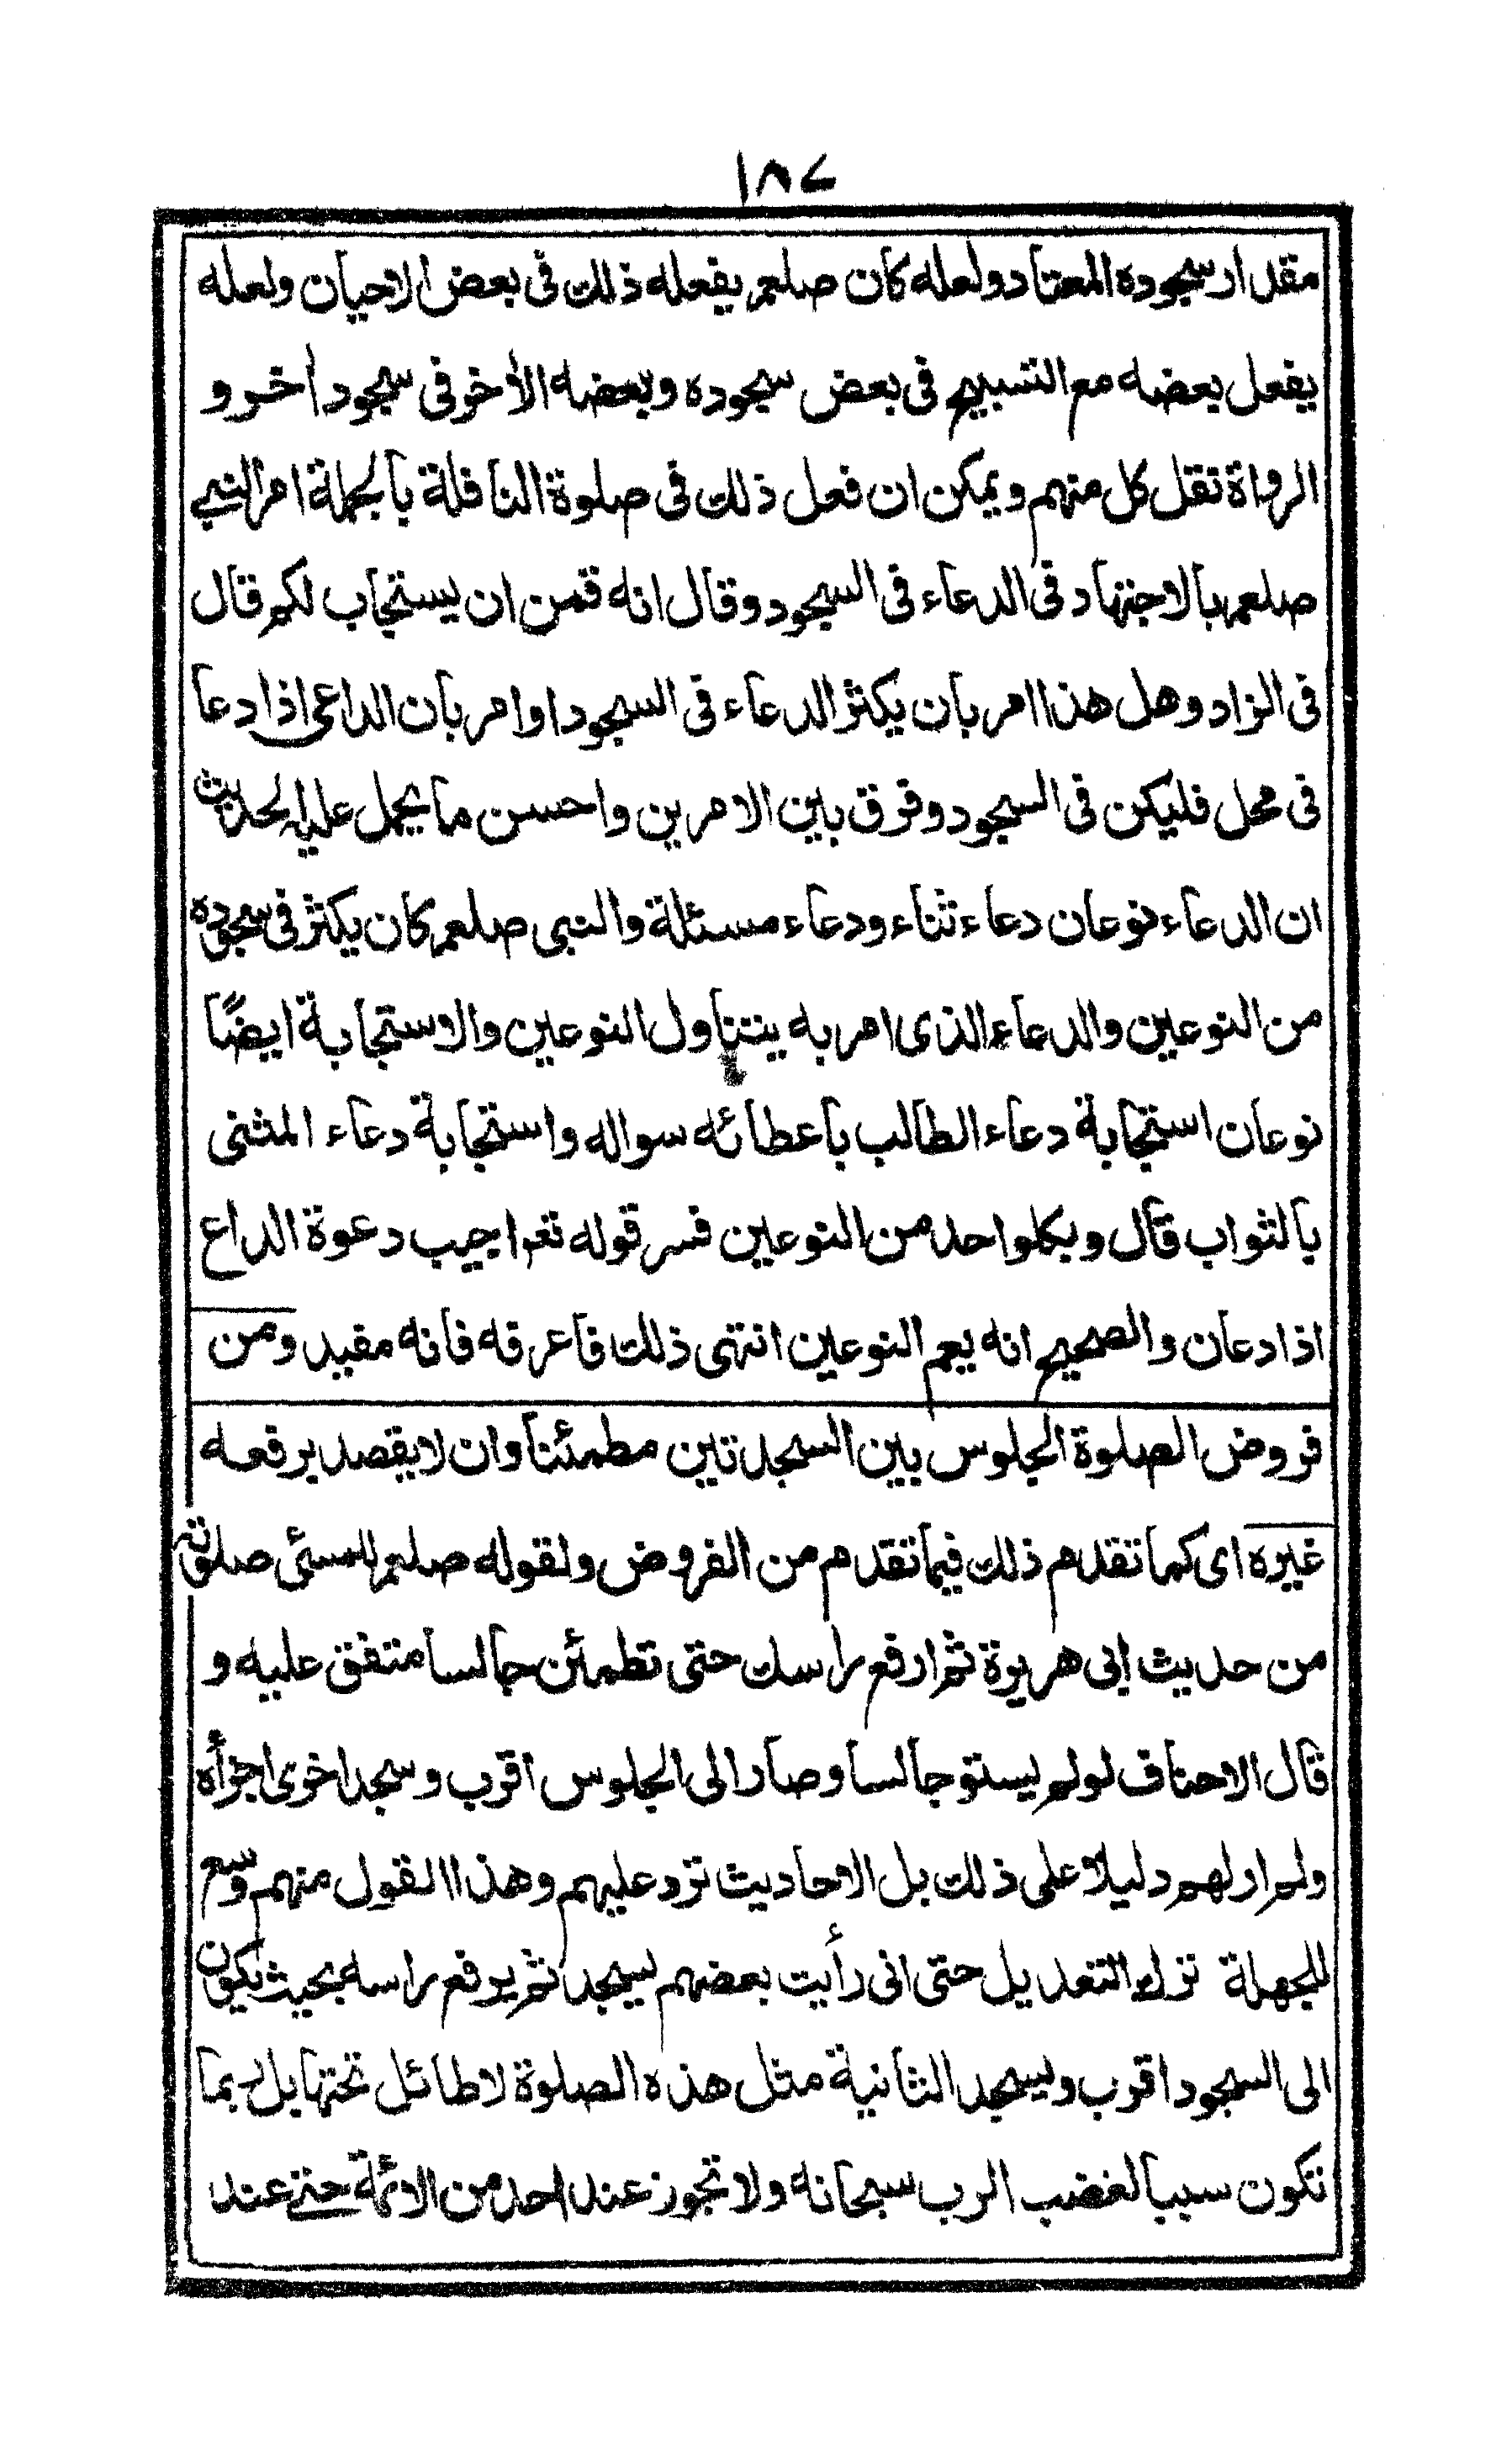 ١٨٧
مقدار سجوده المعتاد ولعله كان صلعم يفعله ذلك فى بعض الاحيان ولعله
يفعل بعضه مع التسبيح فى بعض سجوده وبعضه الأخر فى سجود أخر و
الرواة نقل كل منهم ويمكن ان فعل ذلك فى صلوة النافلة بالجملة امر النبي
صلعم بالاجتهاد فى الدعاء فى السجود وقال انه قمن ان يستجاب لكم قال
فى الزاد وهل هذا امر بان يكثر الدعاء فى السجود او امر بان الداعى اذا دعا
فى محل فليكن فى السجود وفرق بين الامرين واحسن ما يحمل عليه الحديث
ان الدعاء نوعان دعاء ثناء ودعاء مسئلة والنبى صلعم كان يكثر فى سجوده
من النوعين والدعاء الذى امر به يتناول النوعين والاستجابة ايضًا
نوعان استجابة دعاء الطالب باعطائه سواله واستجابة دعاء المثنى
بالثواب قال وبكل واحد من النوعين فسر قوله تعم اجيب دعوة الداع
اذا دعان والصحيح انه يعم النوعين انتهى ذلك فاعرفه فانه مفيد ومن
فروض الصلوة الجلوس بين السجدتين مطمئنا وان لا يقصد برفعه
غيره اى كما تقدم ذلك فيما تقدم من الفروض ولقوله صلعم للمسئى صلوته
من حديث ابى هريرة ثم ارفع راسك حتى تطمئن جالسا متفق عليه و
قال الاحناف لو لم يستو جالسا وصار الى الجلوس اقرب وسجد اخرى اجزأه
ولم ار لهم دليلا على ذلك بل الاحاديث ترد عليهم وهذا القول منهم وسع
للجهلة ترك التعديل حتى انى رأيت بعضهم يسجد ثم يرفع راسه بحيث يكون
الى السجود اقرب ويسجد الثانية مثل هذه الصلوة لا طائل تحتها بل ربما
تكون سببا لغضب الرب سبحانه ولا تجوز عند احد من الائمة حتى عند